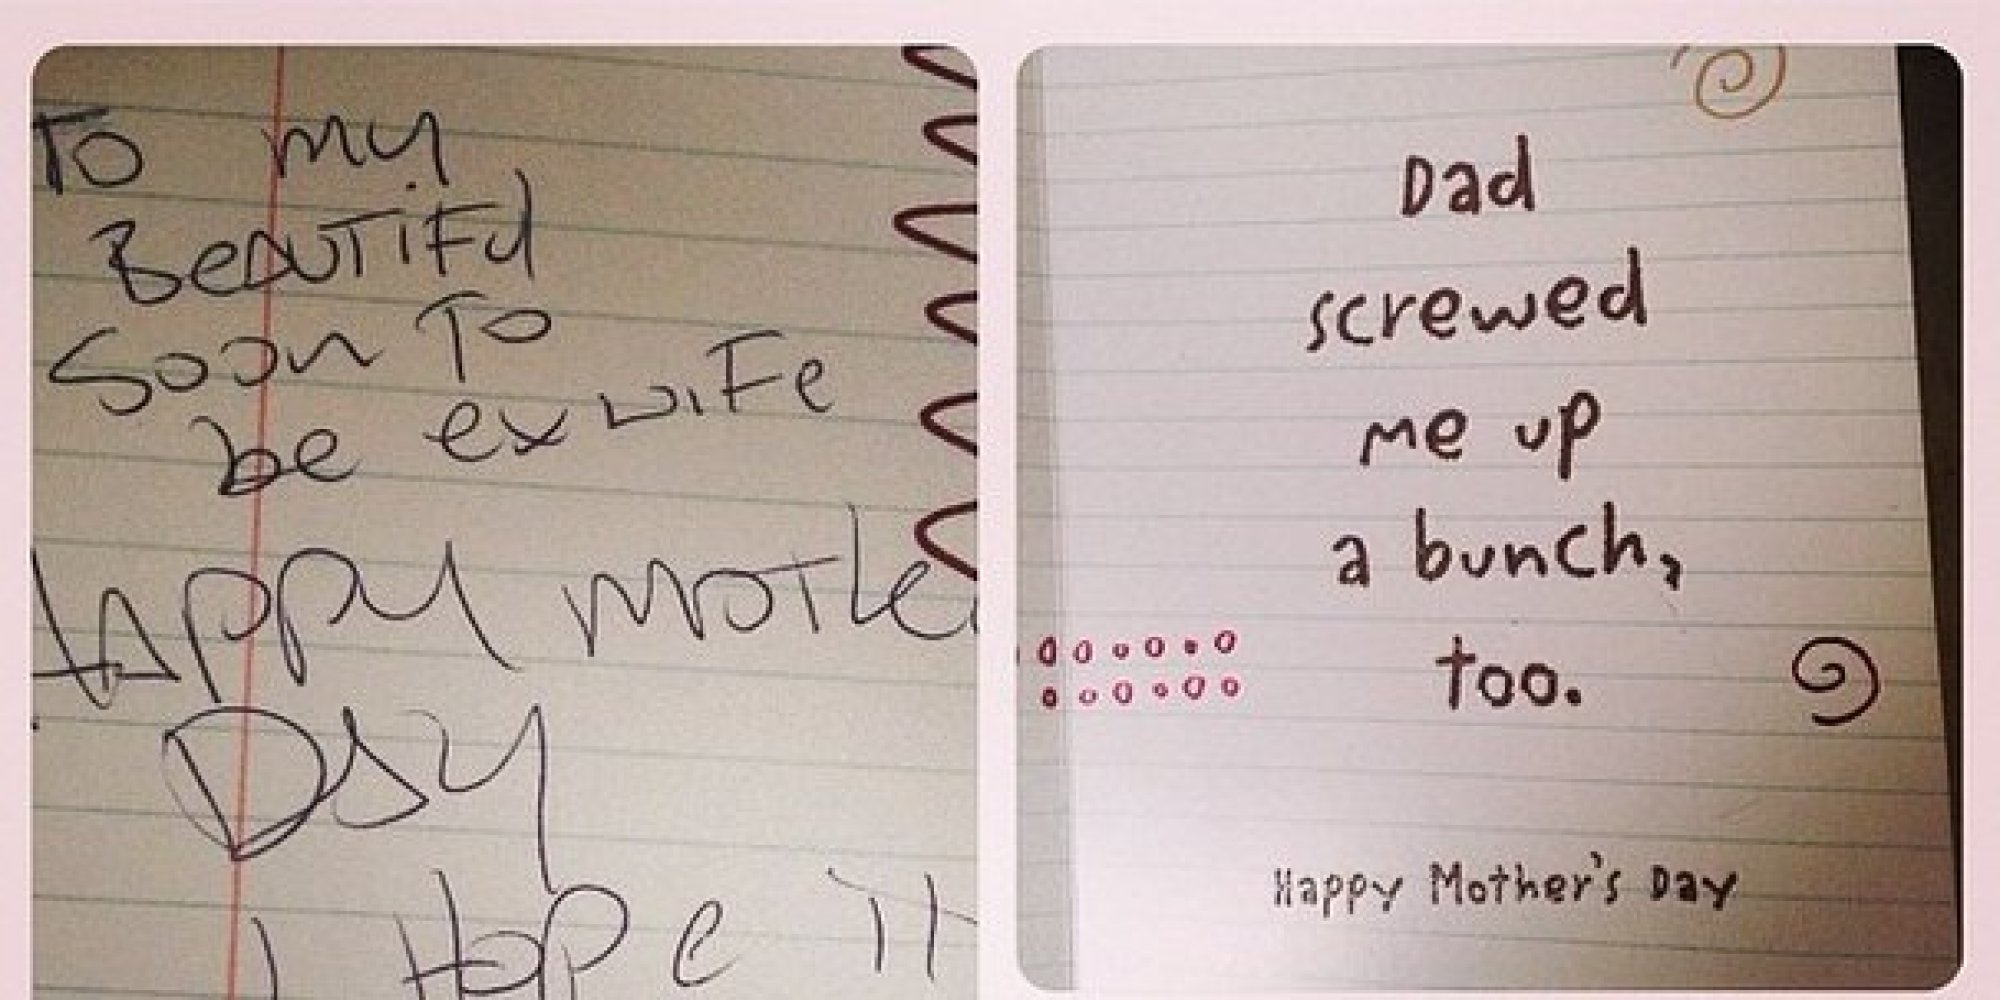 To my
Beautiful
Soon To
be ex wife
Happy mother
Day
I Hope it
Dad
screwed
me up
a bunch,
too.
Happy Mother's Day